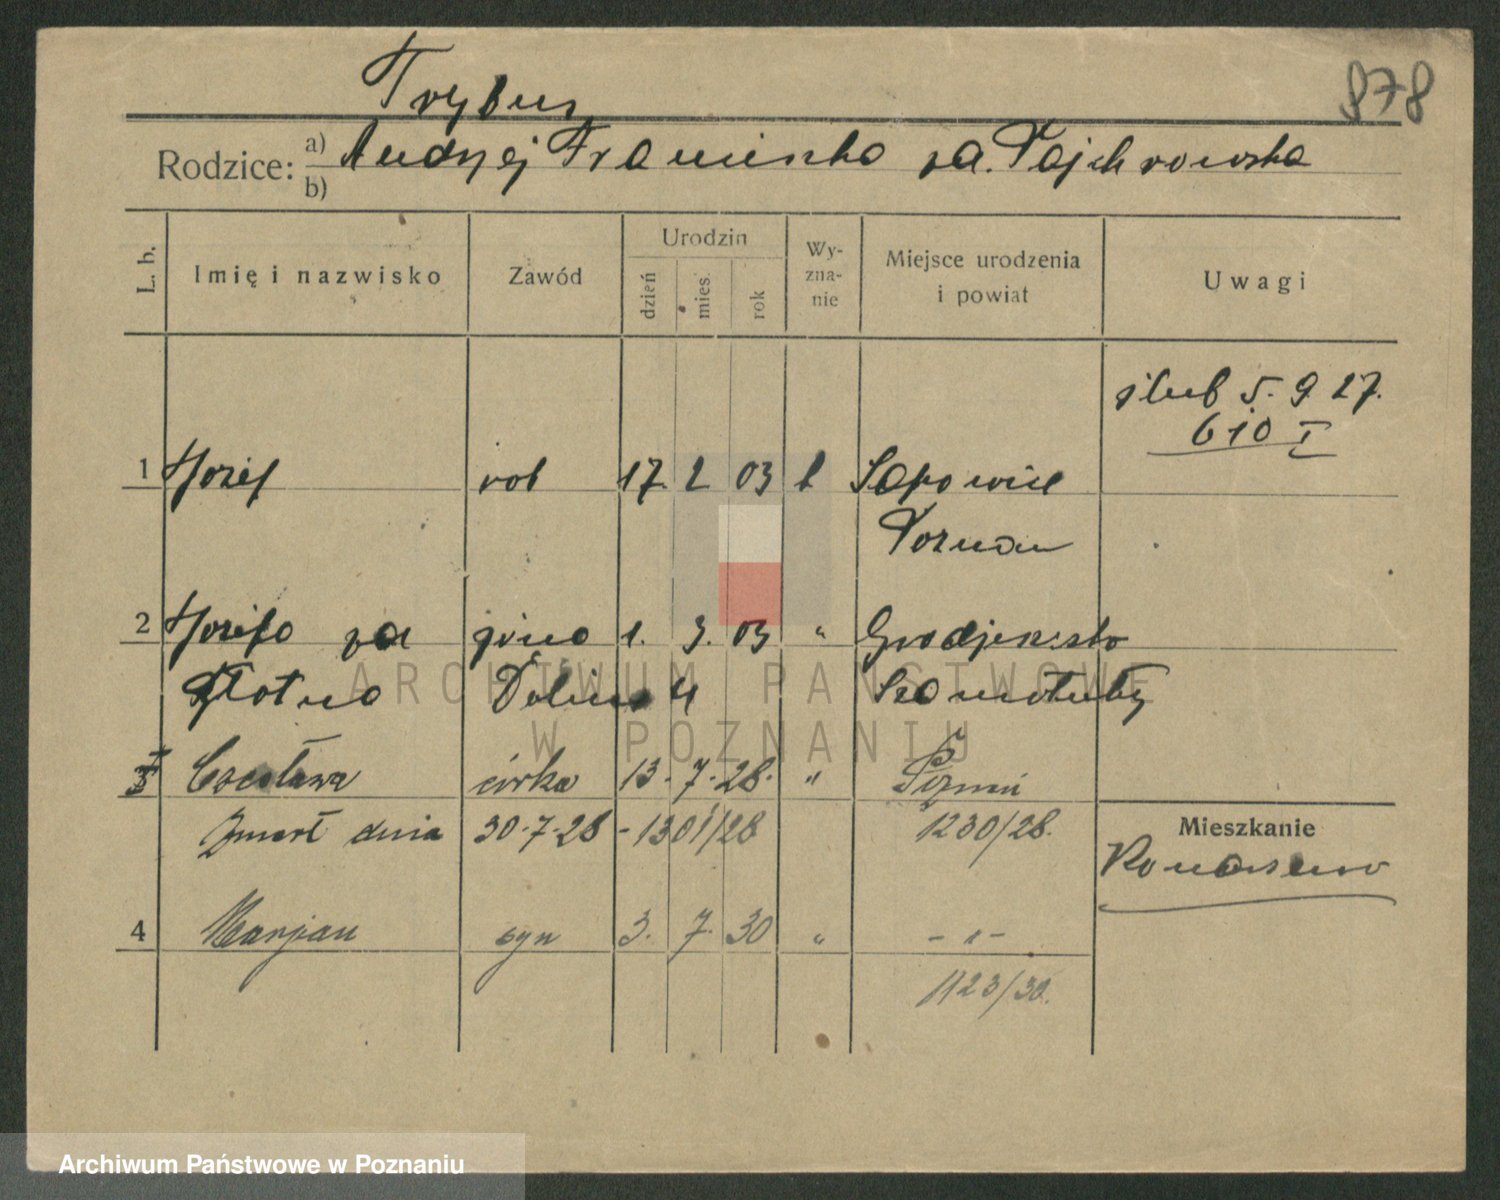 Trybus
878
Rodzice: a) Andrzej Franciszka za. Pajchrowska
b)
L. b.
Imię i nazwisko
Zawód
Urodzin
dzień
mies.
rok
Wy-
zna-
nie
Miejsce urodzenia
i powiat
Uwagi
ślub 5. 9 27.
610 I
1 Józef rob 17. 2 03 k Sapowice
Poznań
2 Józefa za żona 1. 3. 03 " Grodziszczko
Złotna 4 Szamotuły
3 Czesława córka 13. 7. 28. " Poznań
Zmarł dnia 30.7.28 - 1301/28 1230/28.
Mieszkanie
4 Marjan syn 3. 7. 30 " - " -
1123/30.
ARCHIWUM PAŃSTWOWE
W POZNANIU
Archiwum Państwowe w Poznaniu